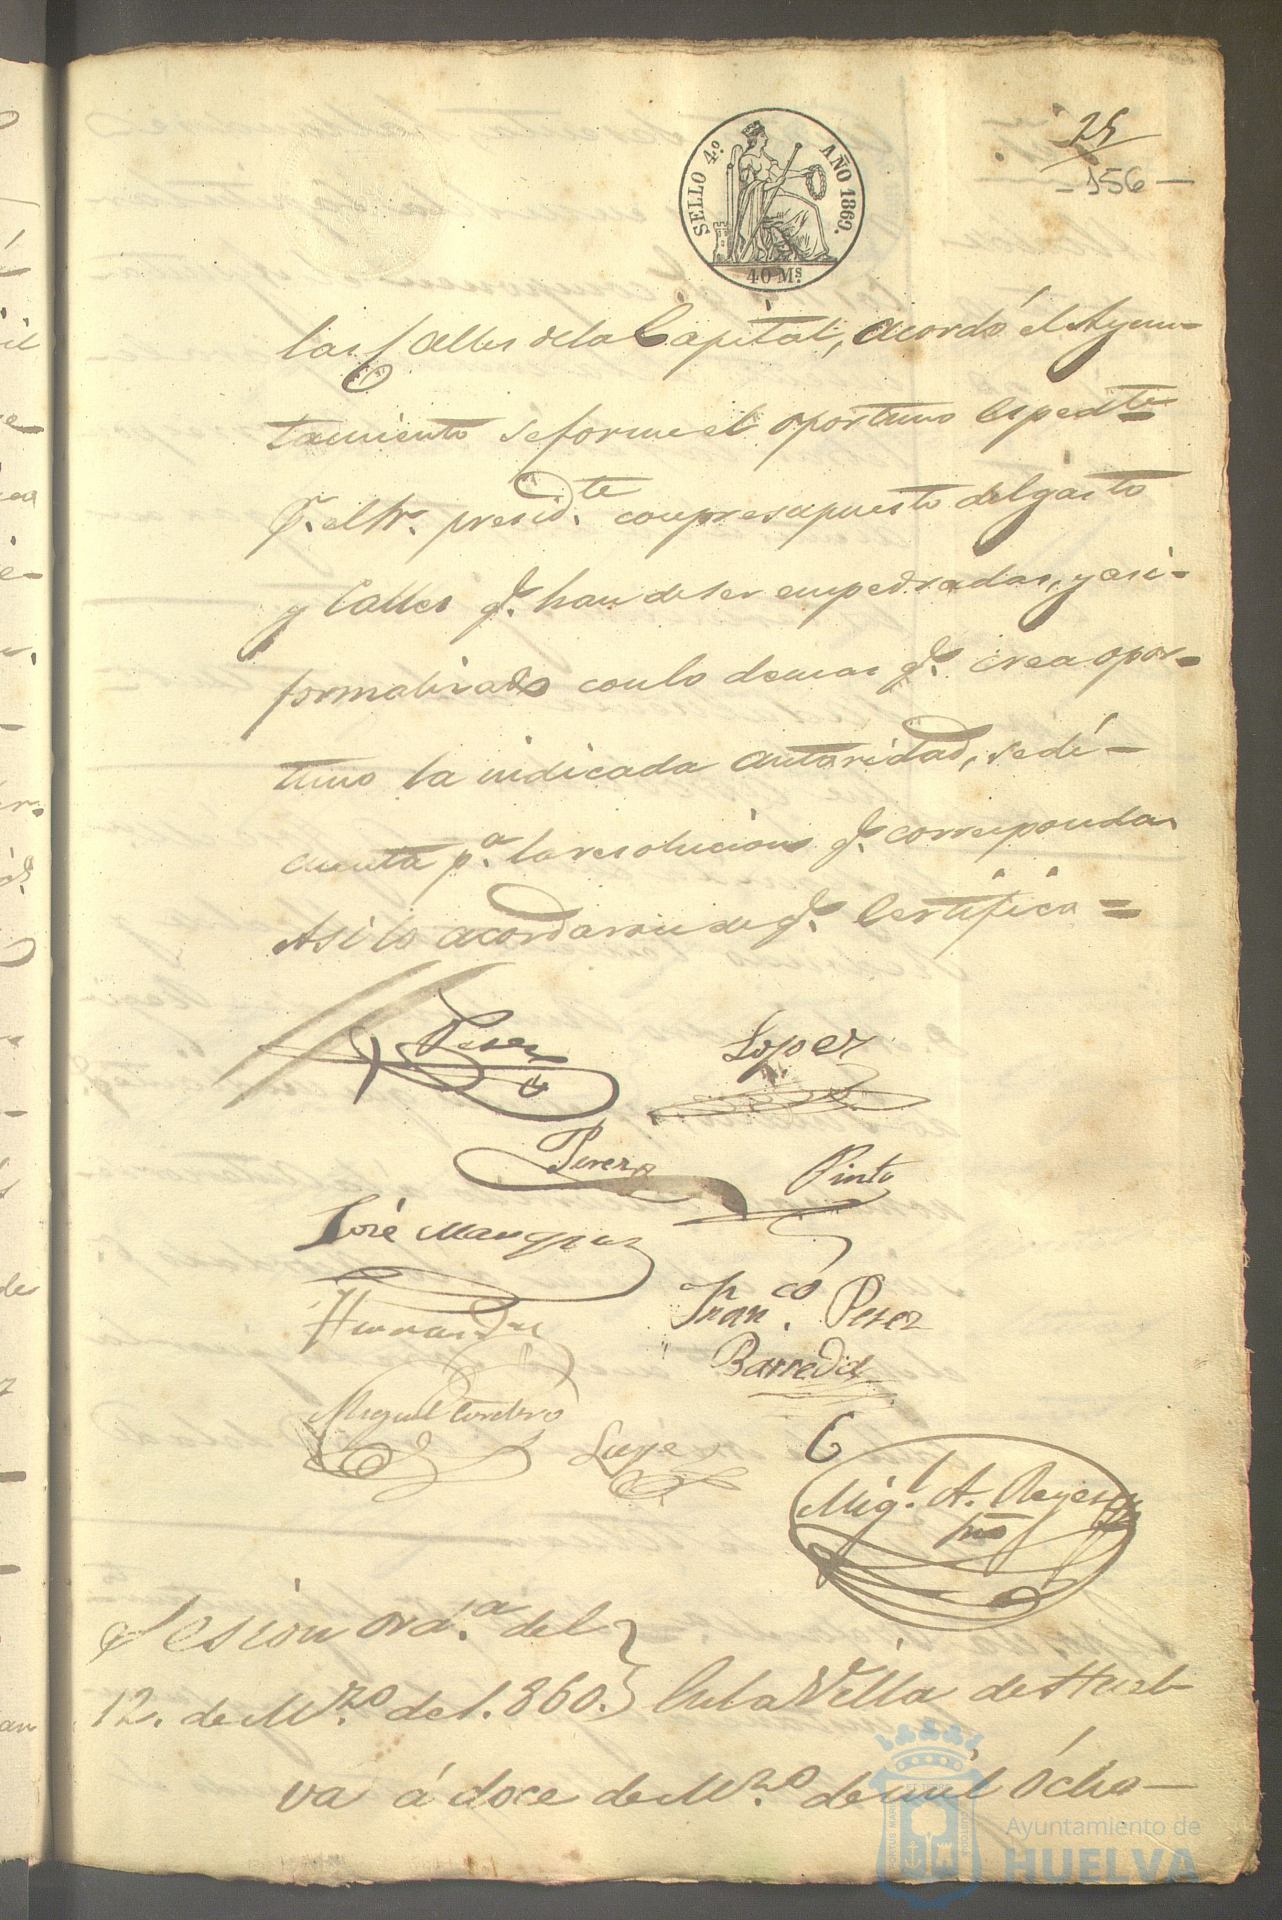 25
-156-
SELLO 4.º AÑO 1860.
40 Ms.
las Calles de la Capital, acordó el Ayun-
tamiento se forme el oportuno Espedte
pr. el Sr. presidte. con presupuesto del gasto
y Calles qe. han de ser empedradas, y asi-
formalizado con lo demas qe. crea opor-
tuno la indicada autoridad, se dé-
cuenta pa. la resolucion qe. corresponda
Asi lo acordaron de qe. Certifica=
Perez
Lopez
Perez
Pinto
José Marquez
Hernandez
Franco. Perez
Barreda
Miguel Cordero
Lope
Migl. A. Reyes
srio
Sesion orda. del
12. de Mzo. de 1.860. En la Villa de Huel-
va á doce de Mzo. de mil ócho-
Ayuntamiento de
HUELVA